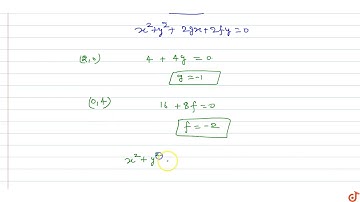 x²+y²+ 2gx+2fy=0
(2,0) 4 + 4g = 0
g=-1
(0,4) 16 +8f=0
f=-2
x²+y²